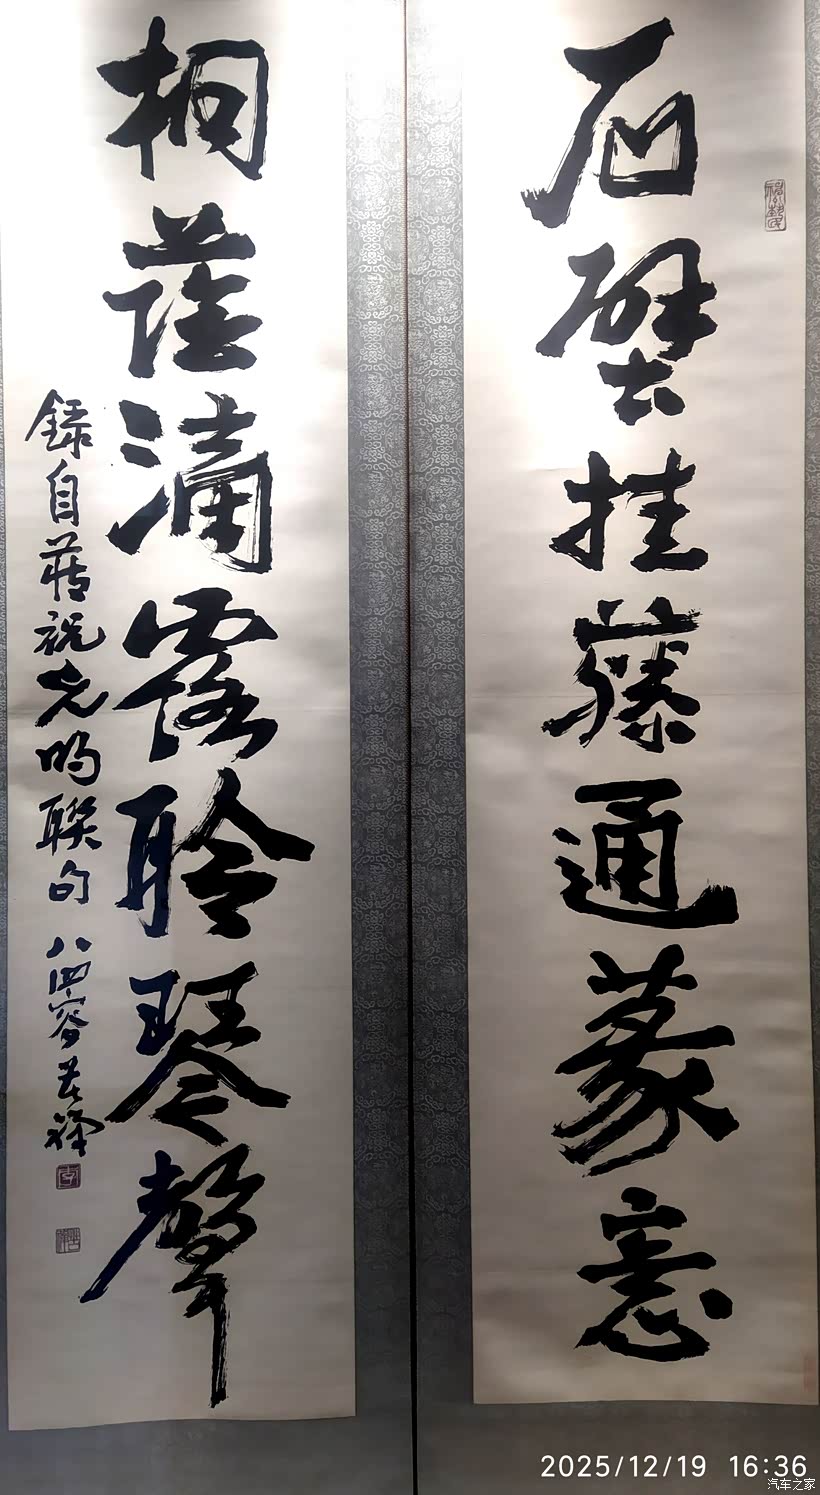 石壁挂藤通篆意
桐蔭滴露聆琴聲
錄自祝允明聯句 八四叟苦禅
2025/12/19 16:36
汽车之家